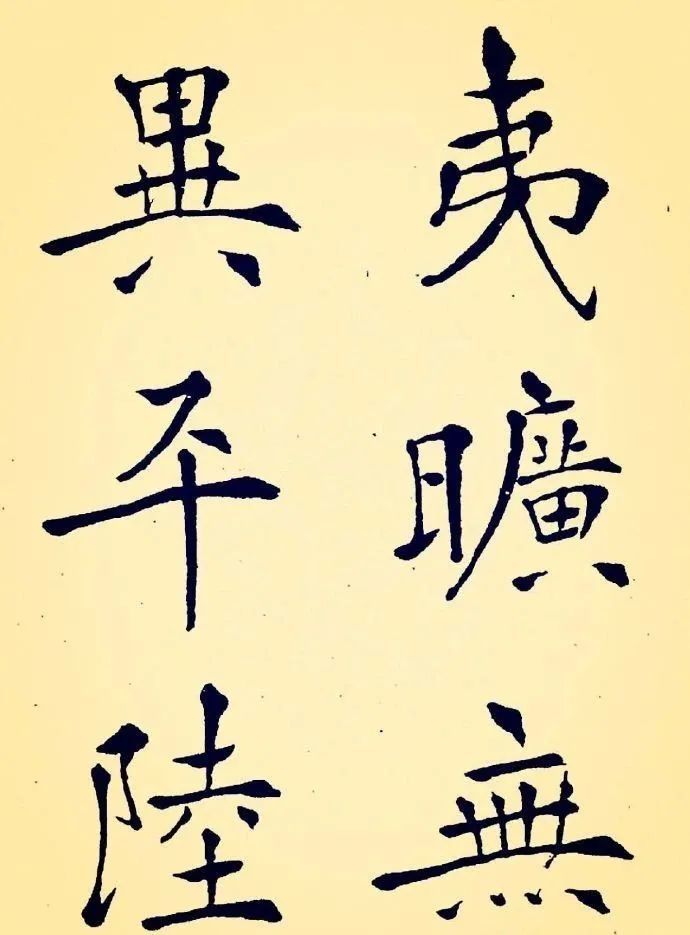 夷曠無
異平陸